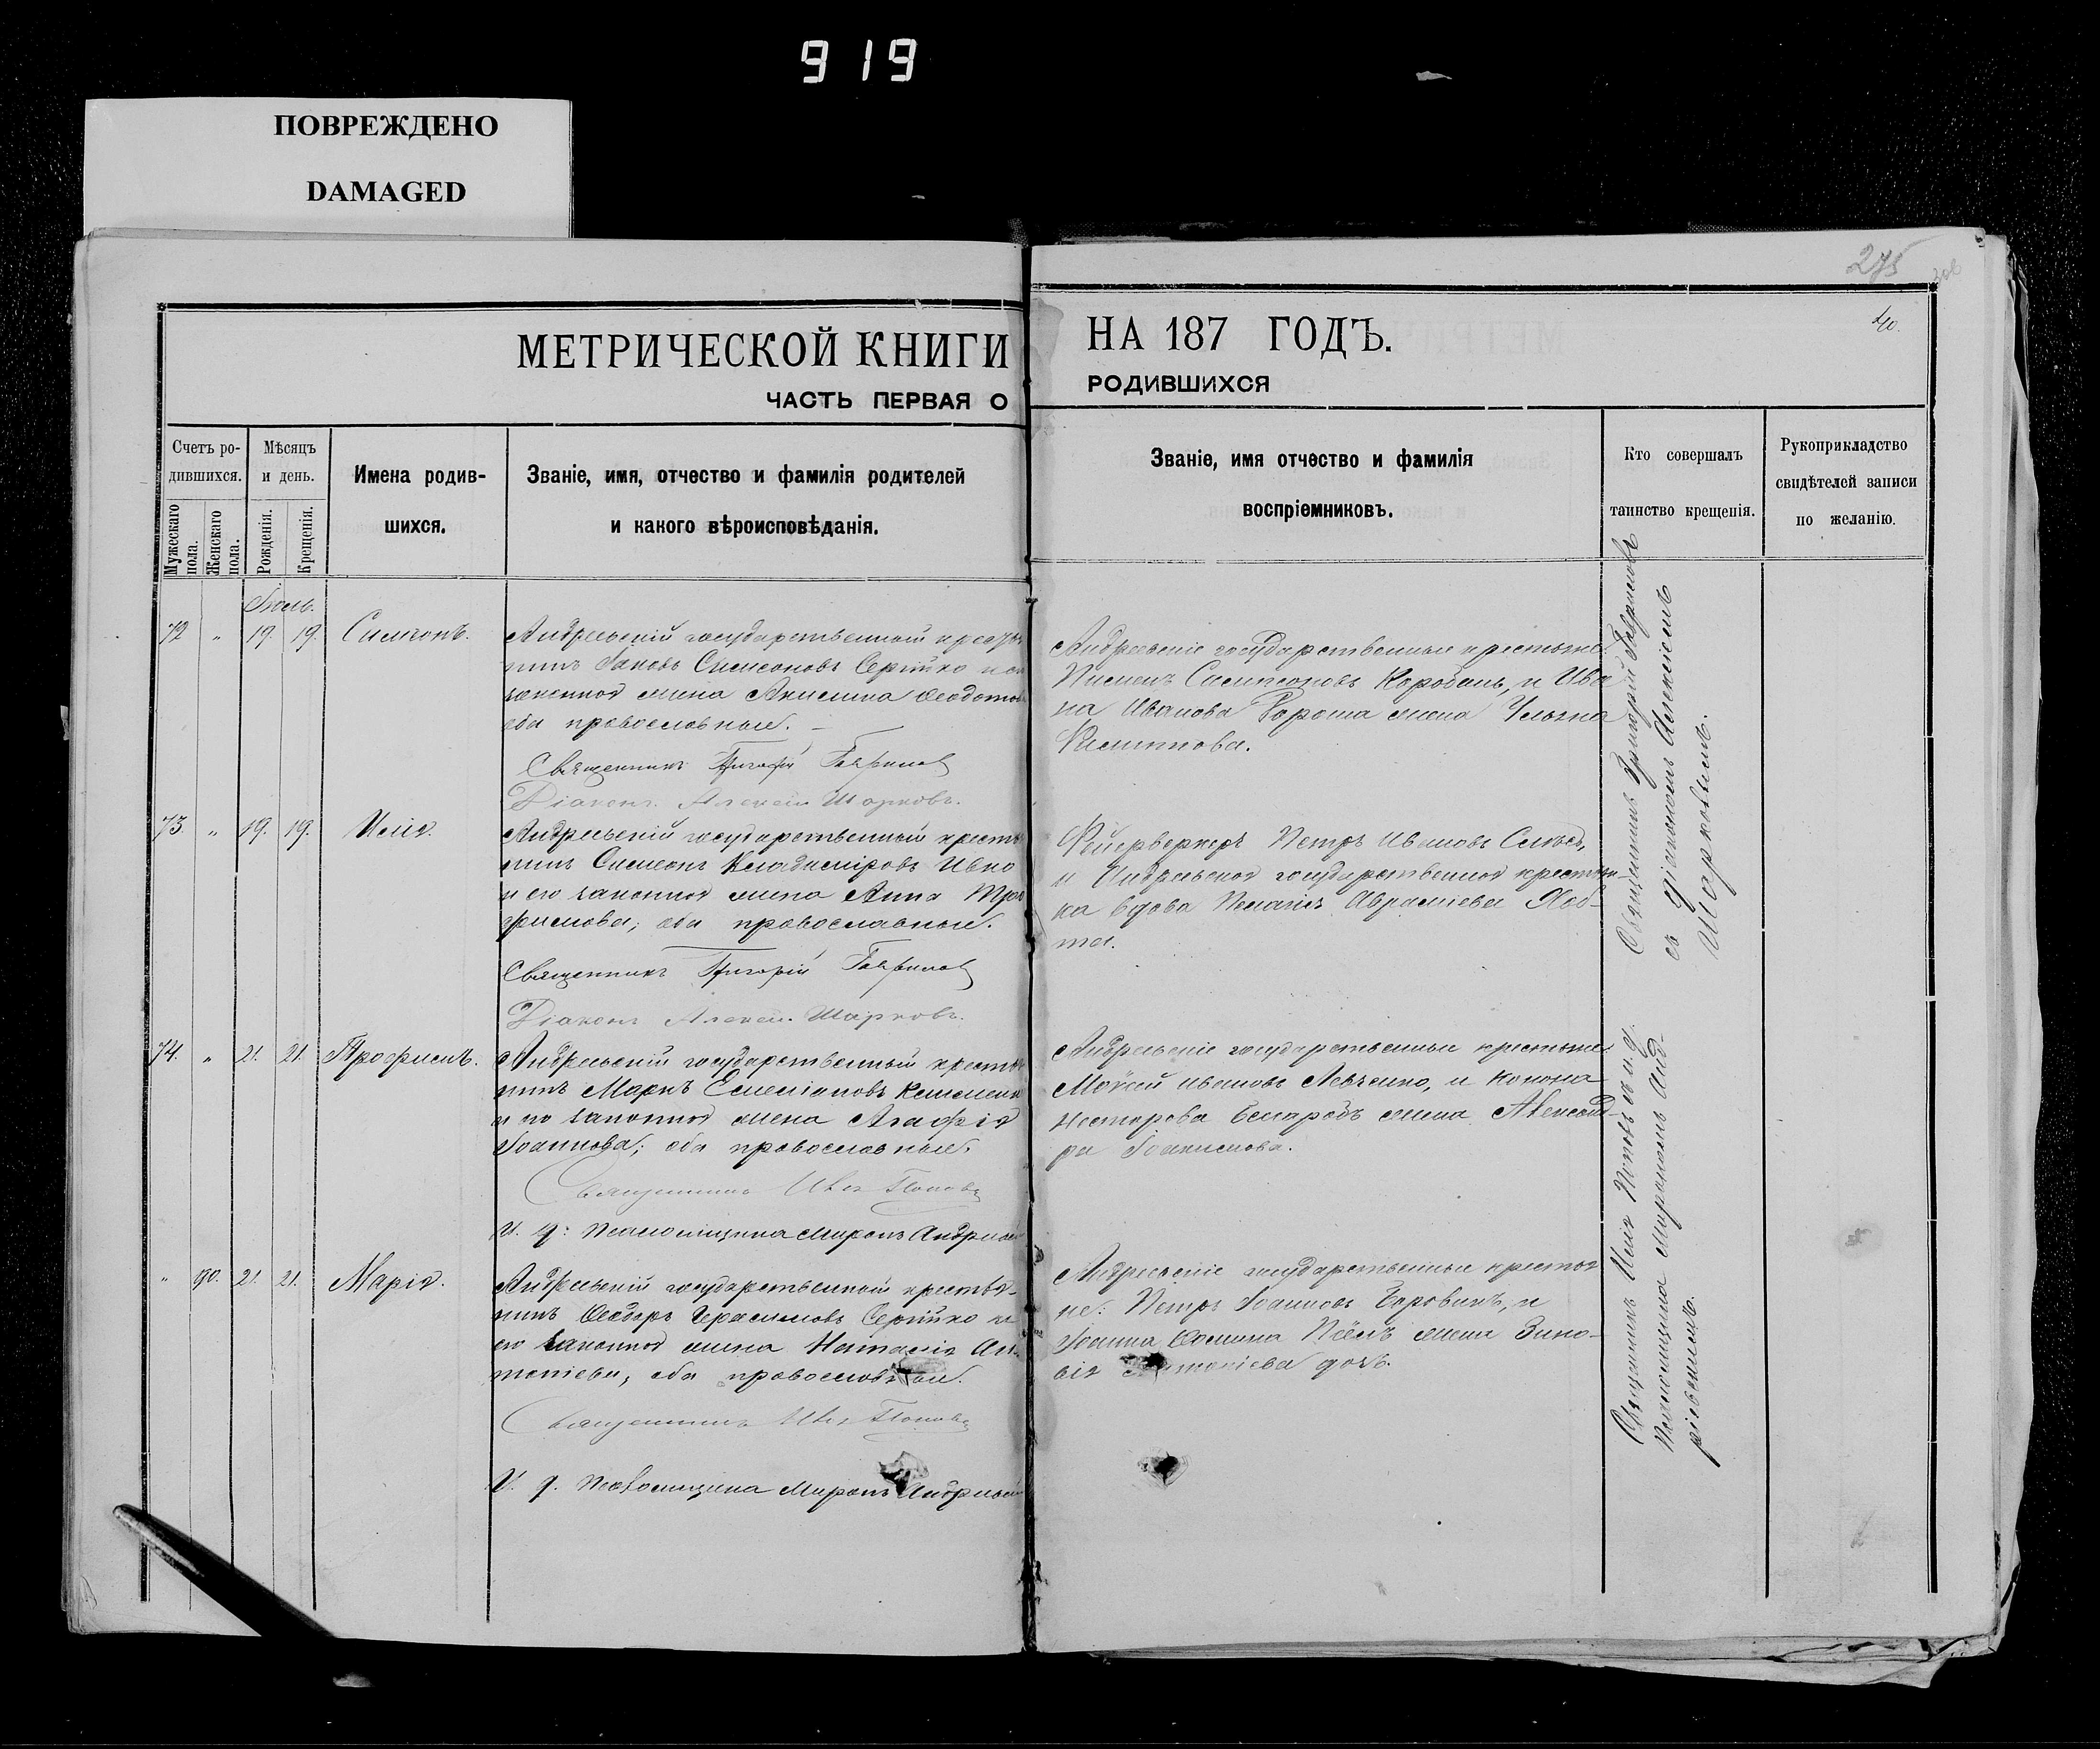 919
ПОВРЕЖДЕНО
DAMAGED
275
40.
МЕТРИЧЕСКОЙ КНИГИ НА 187 ГОДЪ.
ЧАСТЬ ПЕРВАЯ О РОДИВШИХСЯ
Счетъ ро-
дившихся.
Мужескаго пола.
Женскаго пола.
Мѣсяцъ
и день.
Рожденія.
Крещенія.
Имена родив-
шихся.
Званіе, имя, отчество и фамилія родителей
и какого вѣроисповѣданія.
Званіе, имя отчество и фамилія
воспріемниковъ.
Кто совершалъ
таинство крещенія.
Рукоприкладство
свидѣтелей записи
по желанію.
Іюль.
72 " 19. 19. Симеонъ.
Андреевскій государственный кресть
нинъ Іаковъ Симеоновъ Сергійко и е
законная жена Акилина Ѳеодотов
оба православные.
Священникъ Григорій Гавриловъ
Діаконъ Алексѣй Шарковъ.
Андреевскіе государственные крестьяне
Пименъ Самсоновъ Коробань, и Ива
на Иванова жена Ульяна
Филиппова.
73. " 19. 19. Илія.
Андреевскій государственный кресть
нинъ Симеонъ Владиміровъ Ивко
и его законная жена Анна Тро
фимова; оба православные.
Священникъ Григорій Гавриловъ
Діаконъ Алексѣй Шарковъ.
Фейерверкеръ Петръ Ивановъ
и Андреевская государственная крестьян-
ка вдова Авраміева
та.
Священникъ Григорій Гавриловъ
съ діакономъ Алексіемъ
Шарковымъ.
74. " 21. 21. Трофимъ.
Андреевскій государственный кресть
нинъ Маркъ Емеліановъ
и его законная жена Агафія
Іоаннова; оба православные.
Священникъ Илія Поповъ
И. д. Псаломщика Миронъ Андріев
Андреевскіе государственные крестьяне:
Моѵсей Ивановъ Левченко, и Конона
Несторова жена Александ-
ра Іоакимова.
" 90. 21. 21. Марія.
Андреевскій государственный крестья-
нинъ Ѳеодоръ Герасимовъ Сергійко и
его законная жена Наталія Ан-
тоніева, оба православные.
Священникъ Илія Поповъ
И. д. Псаломщика Миронъ Андріев
Андреевскіе государственные крестья
не: Петръ Іоанновъ Боровикъ, и
Іоанна Ѳомина жена Зино-
вія Антоніева дочь.
Священникъ Илія Поповъ съ и. д.
Псаломщика Мирономъ Анд-
ріевскимъ.